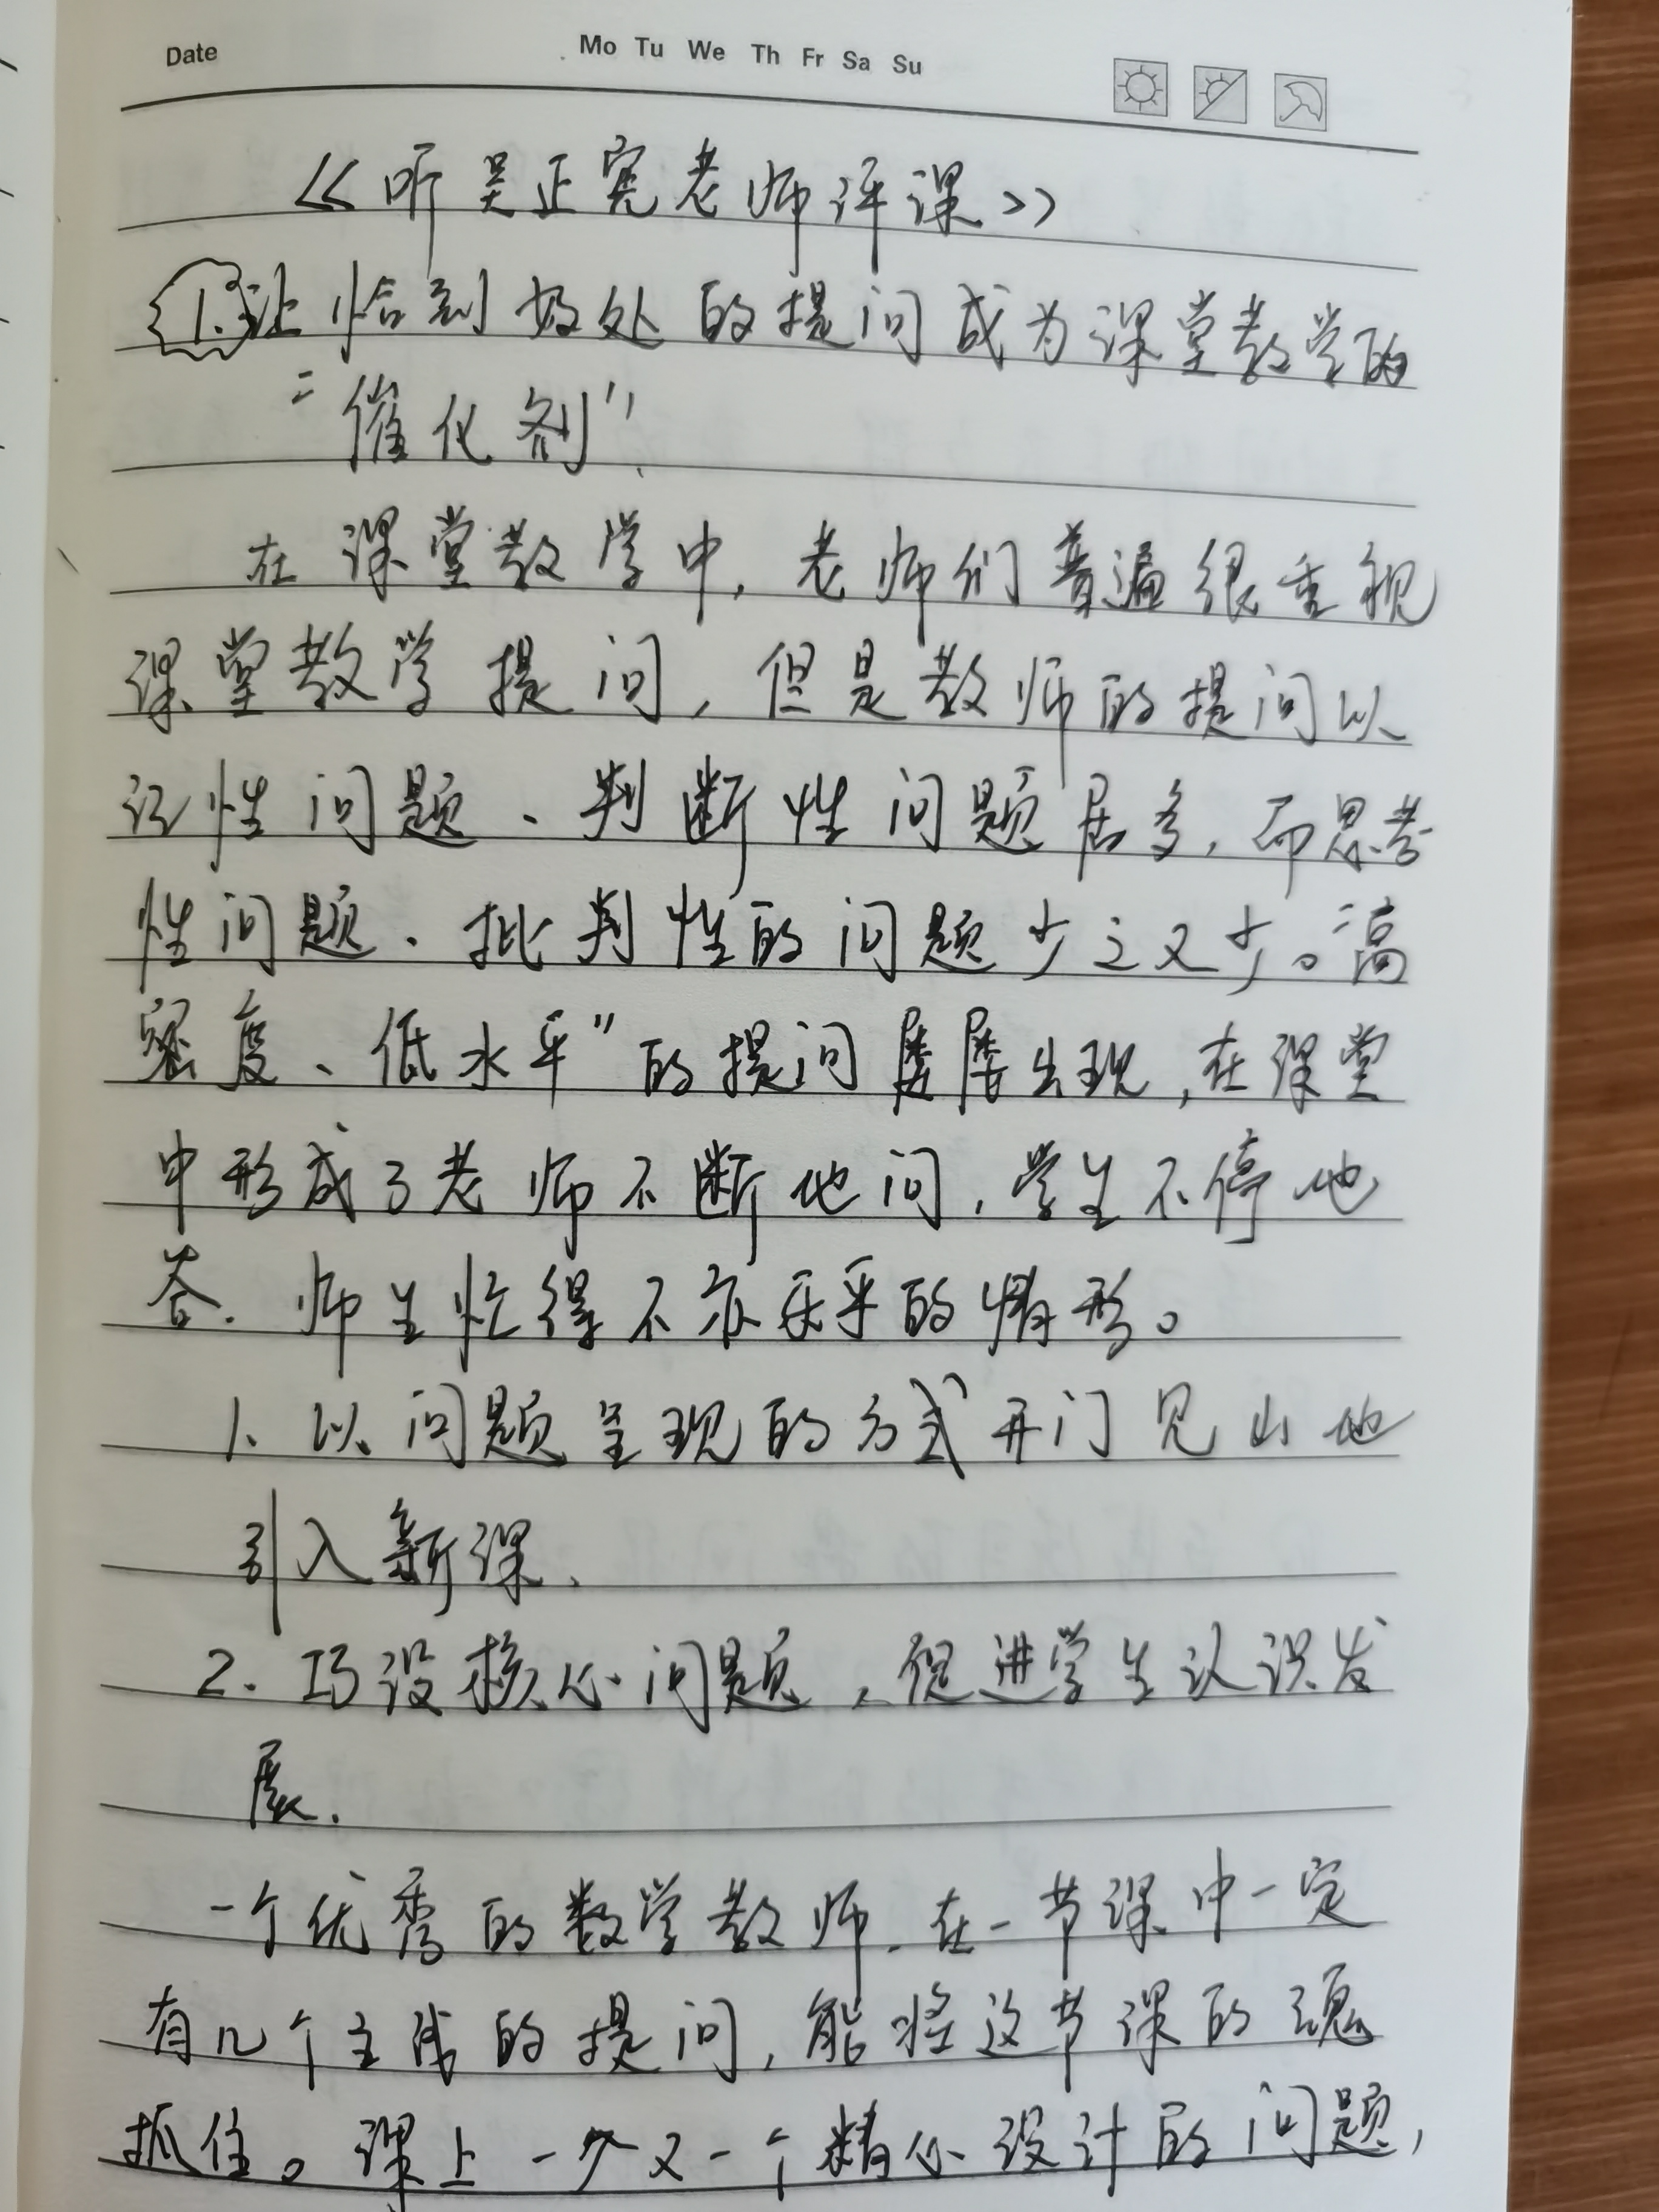 Date Mo Tu We Th Fr Sa Su
《听吴正宪老师评课》
1.让恰到好处的提问成为课堂教学的
“催化剂”.
在课堂教学中,老师们普遍很重视
课堂教学提问,但是教师的提问以
记性问题、判断性问题居多,而思考
性问题、批判性的问题少之又少。“高
密度、低水平”的提问屡屡出现,在课堂
中形成了老师不断地问,学生不停地
答.师生忙得不亦乐乎的情形。
1、以问题呈现的方式开门见山地
引入新课、
2.巧设核心问题,促进学生认识发
展.
一个优秀的数学教师.在一节课中一定
有几个主线的提问,能将这节课的魂
抓住。课上一个又一个精心设计的问题,